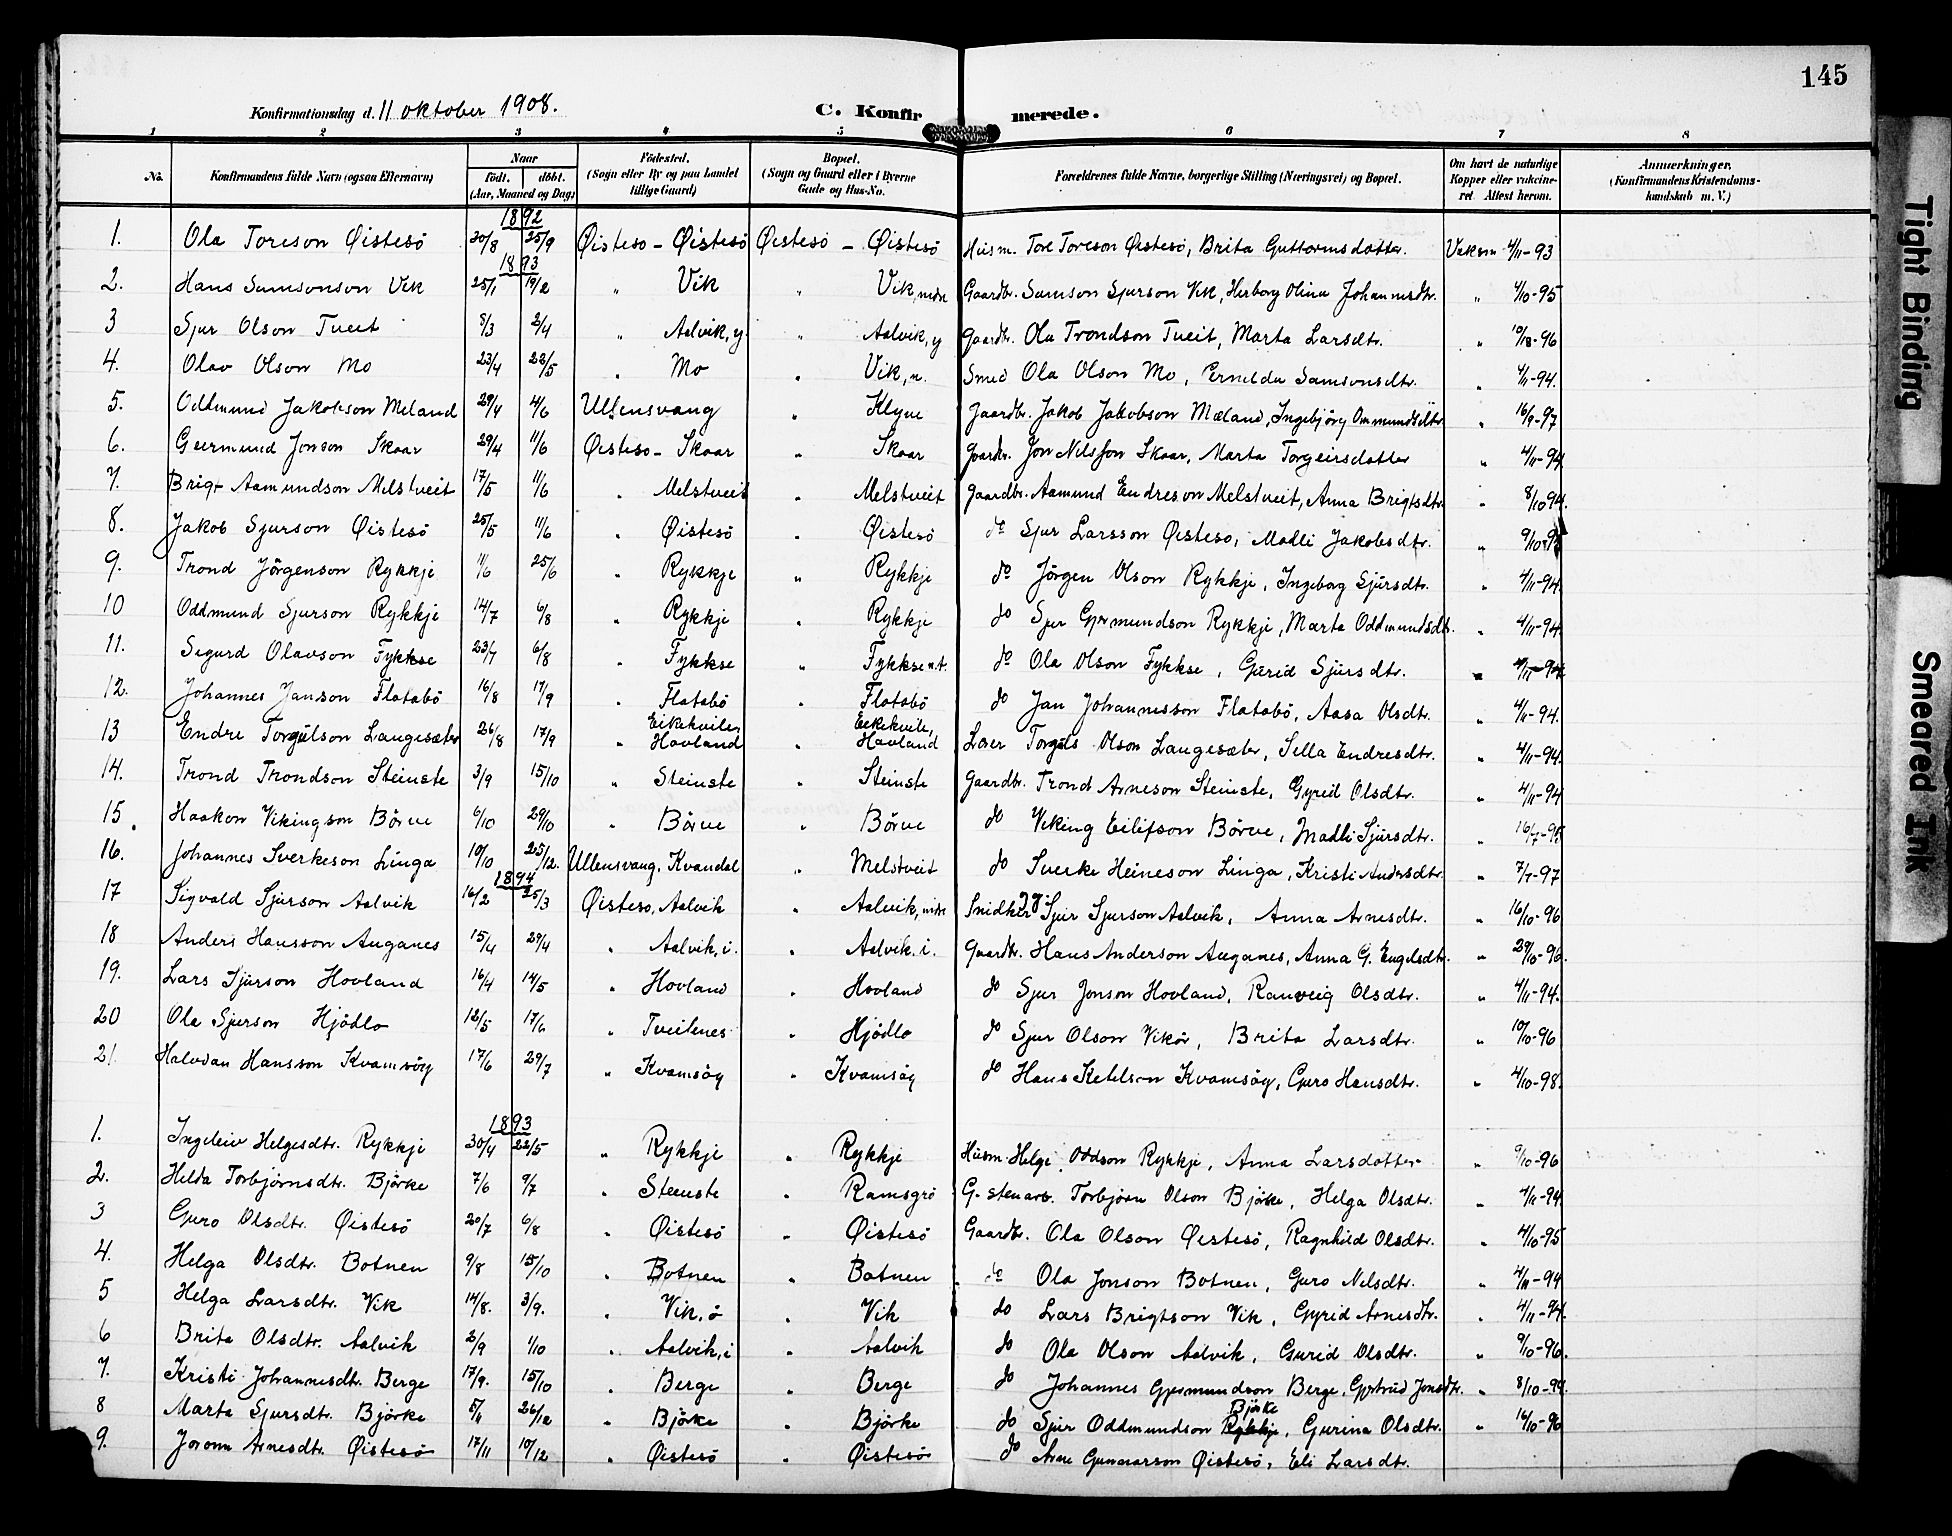 145
Konfirmationsdag d. 11 oktober 1908.
C. Konfirmerede.
1 2 3 4 5 6 7 8
No. Konfirmandens fulde Navn (ogsaa Efternavn) Naar født. døbt. (Aar, Maaned og Dag) Fødested. (Sogn eller By og paa Landet tillige Gaard) Bopæl. (Sogn og Gaard eller i Byerne Gade og Hus-No. Forældrenes fulde Navne, borgerlige Stilling (Næringsvei) og Bopæl. Om havt de naturlige Kopper eller vaccineret Attest herom. Anmerkninger, (Konfirmandens Kristendomskundskab m. V.)
1892
1. Ola Toreson Øistesö 20/8 25/9 Øisteso - Øistesö Øistesö - Øistesö Husm. Tore Toreson Øistesö, Brita Guttormsdotter. Vaksin 4/11-93
1893
2. Hans Samsonson Vik 25/1 19/2 " Vik " Vik, nedre Gaardbr. Samson Sjurson Vik, Herborg Olina Johannesdtr. " 4/10-95
3 Sjur Olson Tveit 8/3 2/4 " Aalvik, y. " Aalvik, y Gaardbr. Ola Trondson Tveit, Marta Larsdtr. " 96
4. Olav Olson Mo 23/4 22/5 " Mo " Vik, n. Smed Ola Olson Mo, Pernilda Samsonsdtr. " 4/11-94.
5. Oddmund Jakobson Meland 29/4 4/6 Ullensvang " Klyve Gaardbr. Jakob Jakobson Mæland, Ingebjörg Ommundsdtr " 16/9-97
6. Geirmund Jonson Skaar 29/4 11/6 Øisteso - Skaar " Skaar Gaardbr. Jon Nilsson Skaar, Marta Torgeirsdatter " 4/11-94
7. Brigt Aamundson Melstveit 17/5 11/6 " Melstveit " Melstveit Gaardbr. Aamund Endreson Melstveit, Anna Brigtsdtr. " 8/10 94.
8. Jakob Sjurson Øistesö 25/5 11/6 " Øistesö " Øistesö do Sjur Larsson Øistesö, Madli Jakobsdtr. "
9. Trond Jörgenson Rykkje 1/6 25/6 " Rykkje " Rykkje do Jörgen Olson Rykkje, Ingeborg Sjursdtr. " 4/11-94.
10 Oddmund Sjurson Rykkje 14/7 6/8 " Rykkje " Rykkje do Sjur Gjermundson Rykkje, Marta Oddmundsdtr. " 4/11-94
11. Sigurd Olavson Fykkse 23/7 6/8 " Fykkse " Fykkse n.t. do Ola Olson Fykkse, Gurid Sjursdtr. " 4/11-94
12. Johannes Janson Flatabö 16/8 17/9 " Flatabö " Flatabö do Jan Johannesson Flatabö, Aasa Olsdtr. " 4/11-94.
13 Endre Torgilson Laugesæter 26/8 17/9 " Eikekvile, Hovland " Eikekvile, Hovland Lærer Torgils Olson Laugesæter, Sella Endresdtr. " 4/11-94.
14. Trond Trondson Steinste 3/9 15/10 " Steinste " Steinste Gaardbr. Trond Arneson Steinste, Gyrid Olsdtr. " 4/11-94
15. Haakon Vikingson Börve 6/10 29/10 " Börve " Börve do Viking Eilifson Börve, Madli Sjursdtr. " 16/7-95
16. Johannes Sverkeson Linga 10/10 25/12. Ullensvang, Kvandal " Melstveit do Sverke Heineson Linga, Kristi Andersdtr. " 7/7-97
1894
17 Sigvald Sjurson Aalvik 16/2 25/3 Øisteso, Aalvik " Aalvik, indre Snidker Sjur Sjurson Aalvik, Anna Arnesdtr. " 16/10-96
18 Anders Hansson Auganes 15/4 29/4 " Aalvik, i. " Aalvik. i. Gaardbr. Hans Anderson Auganes, Anna G. Engelsdtr. " 29/10-96.
19. Lars Sjurson Hovland 16/4 14/5 " Hovland " Hovland do Sjur Jonson Hovland, Ranveig Olsdtr. " 4/11-94.
20 Ola Sjurson Hjödlo 12/5 17/6 " Tveitenes " Hjödlo do Sjur Olson Vikör, Brita Larsdtr. " 10/10-96
21. Halvdan Hansson Kvamsöy 17/6 29/7 " Kvamsöy " Kvamsöy do Hans Ketelson Kvamsöy, Guro Hansdtr. " 4/10-98.
1893
1. Ingeleiv Helgesdtr. Rykkje 30/4 22/5 " Rykkje " Rykkje Husm. Helge Oddson Rykkje, Anna Larsdotter " 9/10-96
2. Helda Torbjörnsdtr. Björke 7/6 9/7 " Steinste " Ramsgrö G. stenarb. Torbjörn Olson Björke, Helga Olsdtr. " 4/11-94
3 Guro Olsdtr. Øistesö 20/7 6/8 " Øistesö " Øistesö Gaardbr. Ola Olson Øistesö, Ragnhild Olsdtr. " 4/10-95
4. Helga Olsdtr. Botnen 9/8 15/10 " Botnen " Botnen do Ola Jonson Botnen, Guro Nilsdtr. " 4/11-94
5 Helga Larsdtr. Vik 14/8. 3/9. " Vik, ö " Vik do Lars Brigtson Vik, Gyrid Arnesdtr. " 4/11-94.
6 Brita Olsdtr. Aalvik 2/9 1/10 " Aalvik, i " Aalvik do Ola Olson Aalvik, Gurid Olsdtr. " 9/10-96.
7. Kristi Johannesdtr. Berge 17/9. 15/10 " Berge " Berge do Johannes Gjermundson Berge, Gjertrud Jonsdtr. " 8/10-94.
8 Marta Sjursdtr. Björke 5/11 26/12 " Björke " Björke do Sjur Oddmundson Rykkje Björke, Gurina Olsdtr. " 16/10-96
9. Joronn Arnesdtr. Øistesö 17/11 10/12 " Øistesö " Øistesö do Arne Gunnarson Øistesö, Eli Larsdtr.
Tight Binding
Smeared Ink